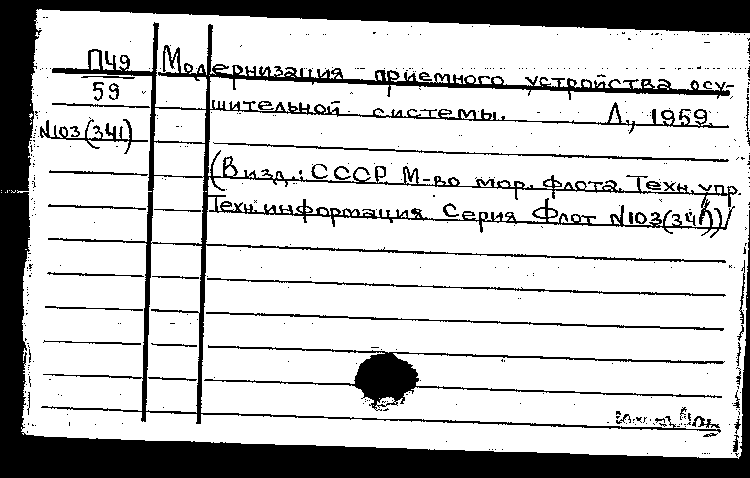 П49
59
N103(341)
Модернизация приемного устройства осу-
шительной системы. Л., 1959.
(В изд.: СССР. М-во мор. флота. Техн. упр.
Техн. информация. Серия Флот N103(341))